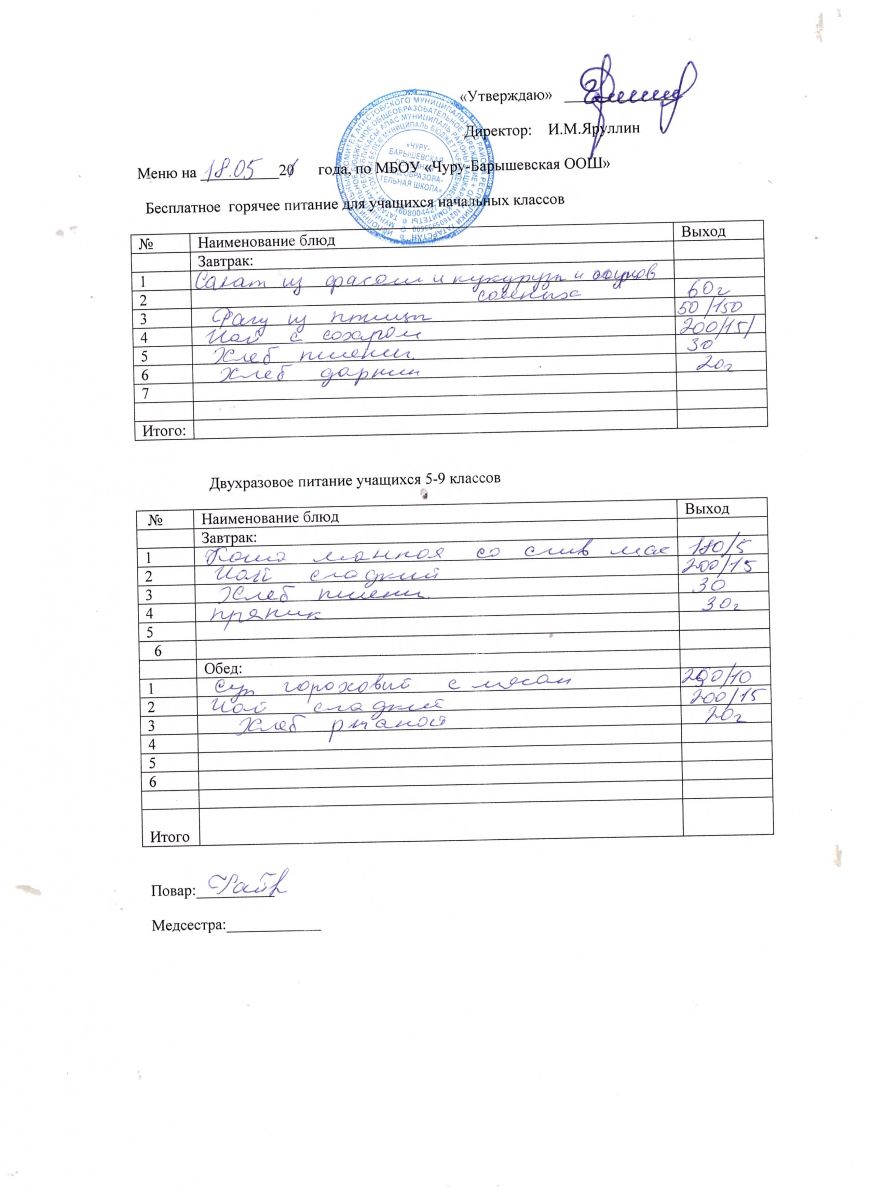 «Утверждаю»
Директор: И.М.Яруллин
Меню на 18.05 20 года, по МБОУ «Чуру-Барышевская ООШ»
Бесплатное горячее питание для учащихся начальных классов
№ Наименование блюд Выход
Завтрак:
1 Салат из фасоли и кукурузы и огурцов
2 соленых 60г
3 Рагу из птицы 50/150
4 Чай с сахаром 200/15/
5 Хлеб пшенич. 30
6 Хлеб дарниц 20г
7
Итого:
Двухразовое питание учащихся 5-9 классов
№ Наименование блюд Выход
Завтрак:
1 Каша манная со слив мас 180/5
2 Чай сладкий 200/15
3 Хлеб пшенич. 30
4 пряник 30г
5
6
Обед:
1 Суп гороховый с мясом 250/10
2 Чай сладкий 200/15
3 Хлеб ржаной 20г
4
5
6
Итого
Повар:
Медсестра: